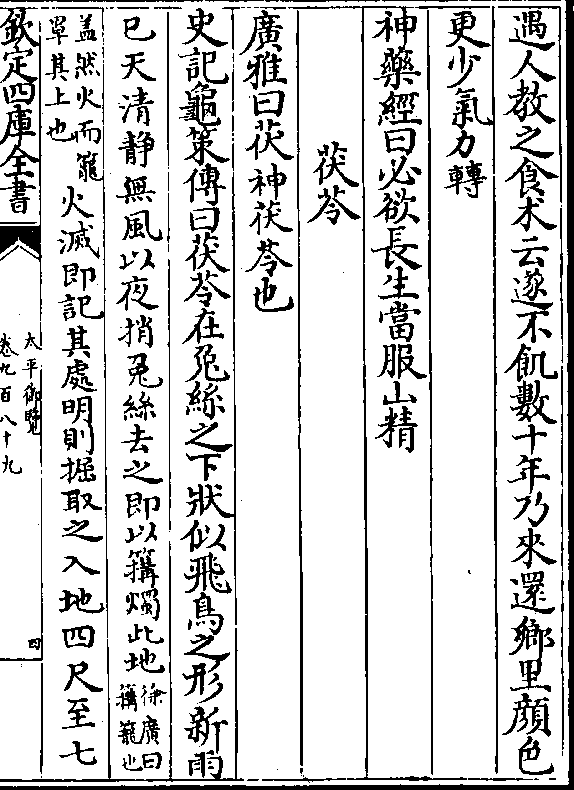 遇人教之食术云遂不飢數十年乃來還鄉里顔色
更少氣力轉
神藥經曰必欲長生當服山精
茯苓
廣雅曰茯神茯苓也
史記龜策傳曰茯苓在兎絲之下狀似飛鳥之形新雨
已天清静無風以夜捎兎絲去之即以篝燭此地徐廣曰篝籠也
盖然火而籠罩其上也火滅即記其處明則掘取之入地四尺至七
欽定四庫全書
太平御覽
卷九百八十九
四